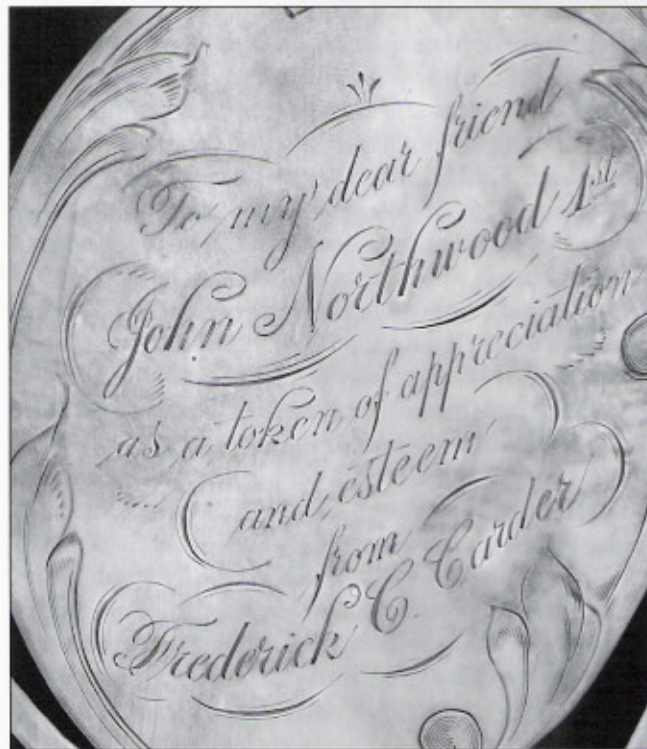 To my dear friend
John Northwood 1st
as a token of appreciation
and esteem
from
Frederick C. Carder